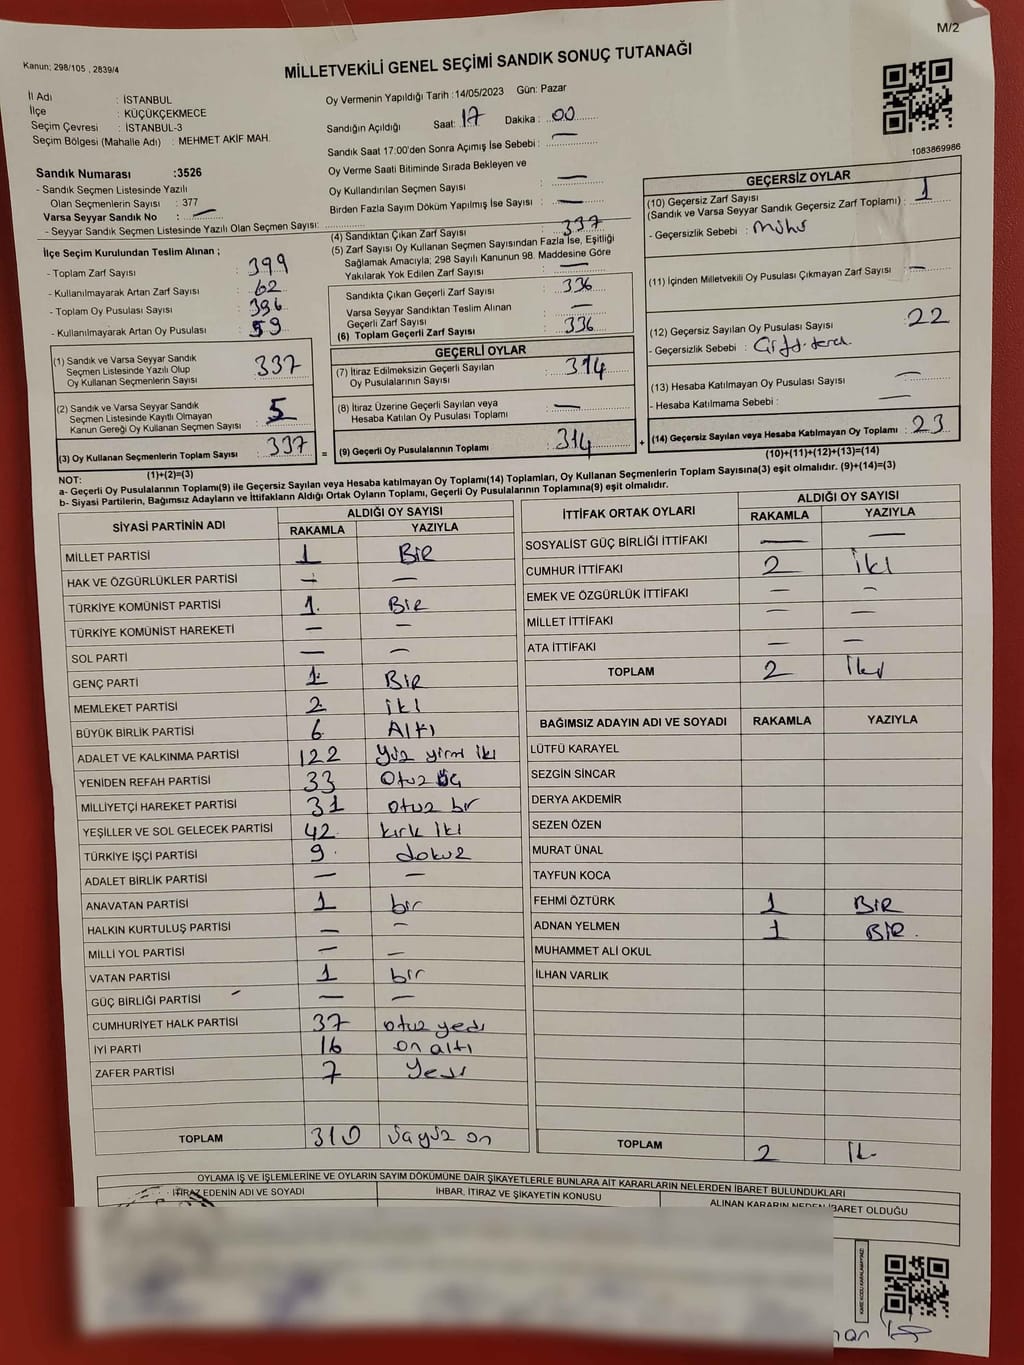 M/2
Kanun; 298/105 , 2839/4
MİLLETVEKİLİ GENEL SEÇİMİ SANDIK SONUÇ TUTANAĞI
İl Adı : İSTANBUL
İlçe : KÜÇÜKÇEKMECE
Seçim Çevresi : İSTANBUL-3
Seçim Bölgesi (Mahalle Adı) : MEHMET AKİF MAH.
Oy Vermenin Yapıldığı Tarih :14/05/2023 Gün: Pazar
Sandığın Açıldığı Saat: 17 Dakika : 00
Sandık Saat 17:00'den Sonra Açımış İse Sebebi : —
Oy Verme Saati Bitiminde Sırada Bekleyen ve
Oy Kullandırılan Seçmen Sayısı : —
Birden Fazla Sayım Döküm Yapılmış İse Sayısı : —
1083869986
Sandık Numarası :3526
- Sandık Seçmen Listesinde Yazılı
Olan Seçmenlerin Sayısı : 377
Varsa Seyyar Sandık No : —
- Seyyar Sandık Seçmen Listesinde Yazılı Olan Seçmen Sayısı:
İlçe Seçim Kurulundan Teslim Alınan ;
- Toplam Zarf Sayısı : 399
- Kullanılmayarak Artan Zarf Sayısı : 62
- Toplam Oy Pusulası Sayısı : 396
- Kullanılmayarak Artan Oy Pusulası : 59
(1) Sandık ve Varsa Seyyar Sandık
Seçmen Listesinde Yazılı Olup
Oy Kullanan Seçmenlerin Sayısı : 337
(2) Sandık ve Varsa Seyyar Sandık
Seçmen Listesinde Kayıtlı Olmayan
Kanun Gereği Oy Kullanan Seçmen Sayısı : 5
(3) Oy Kullanan Seçmenlerin Toplam Sayısı : 337
(1)+(2)=(3)
(4) Sandıktan Çıkan Zarf Sayısı : 337
(5) Zarf Sayısı Oy Kullanan Seçmen Sayısından Fazla İse, Eşitliği
Sağlamak Amacıyla; 298 Sayılı Kanunun 98. Maddesine Göre
Yakılarak Yok Edilen Zarf Sayısı : —
Sandıkta Çıkan Geçerli Zarf Sayısı : 336
Varsa Seyyar Sandıktan Teslim Alınan
Geçerli Zarf Sayısı : —
(6) Toplam Geçerli Zarf Sayısı : 336
GEÇERLİ OYLAR
(7) İtiraz Edilmeksizin Geçerli Sayılan
Oy Pusulalarının Sayısı : 314
(8) İtiraz Üzerine Geçerli Sayılan veya
Hesaba Katılan Oy Pusulası Toplamı : —
= (9) Geçerli Oy Pusulalarının Toplamı : 314
GEÇERSİZ OYLAR
(10) Geçersiz Zarf Sayısı
(Sandık ve Varsa Seyyar Sandık Geçersiz Zarf Toplamı) : 1
- Geçersizlik Sebebi : Mühür
(11) İçinden Milletvekili Oy Pusulası Çıkmayan Zarf Sayısı : —
(12) Geçersiz Sayılan Oy Pusulası Sayısı : 22
- Geçersizlik Sebebi :
(13) Hesaba Katılmayan Oy Pusulası Sayısı : —
- Hesaba Katılmama Sebebi : —
+ (14) Geçersiz Sayılan veya Hesaba Katılmayan Oy Toplamı : 23
(10)+(11)+(12)+(13)=(14)
NOT:
a- Geçerli Oy Pusulalarının Toplamı(9) ile Geçersiz Sayılan veya Hesaba katılmayan Oy Toplamı(14) Toplamları, Oy Kullanan Seçmenlerin Toplam Sayısına(3) eşit olmalıdır. (9)+(14)=(3)
b- Siyasi Partilerin, Bağımsız Adayların ve İttifakların Aldığı Ortak Oyların Toplamı, Geçerli Oy Pusulalarının Toplamına(9) eşit olmalıdır.
SİYASİ PARTİNİN ADI ALDIĞI OY SAYISI
RAKAMLA YAZIYLA
MİLLET PARTİSİ 1 BİR
HAK VE ÖZGÜRLÜKLER PARTİSİ — —
TÜRKİYE KOMÜNİST PARTİSİ 1. BİR
TÜRKİYE KOMÜNİST HAREKETİ — —
SOL PARTİ — —
GENÇ PARTİ 1 BİR
MEMLEKET PARTİSİ 2 iki
BÜYÜK BİRLİK PARTİSİ 6 Altı
ADALET VE KALKINMA PARTİSİ 122 Yüz yirmi iki
YENİDEN REFAH PARTİSİ 33 Otuz üç
MİLLİYETÇİ HAREKET PARTİSİ 31 otuz bir
YEŞİLLER VE SOL GELECEK PARTİSİ 42 kırk iki
TÜRKİYE İŞÇİ PARTİSİ 9 dokuz
ADALET BİRLİK PARTİSİ — —
ANAVATAN PARTİSİ 1 bir
HALKIN KURTULUŞ PARTİSİ — —
MİLLİ YOL PARTİSİ — —
VATAN PARTİSİ 1 bir
GÜÇ BİRLİĞİ PARTİSİ — —
CUMHURİYET HALK PARTİSİ 37 otuz yedi
İYİ PARTİ 16 on altı
ZAFER PARTİSİ 7 Yedi
TOPLAM 310 üçyüz on
İTTİFAK ORTAK OYLARI ALDIĞI OY SAYISI
RAKAMLA YAZIYLA
SOSYALİST GÜÇ BİRLİĞİ İTTİFAKI — —
CUMHUR İTTİFAKI 2 İki
EMEK VE ÖZGÜRLÜK İTTİFAKI — —
MİLLET İTTİFAKI — —
ATA İTTİFAKI — —
TOPLAM 2 İki
BAĞIMSIZ ADAYIN ADI VE SOYADI RAKAMLA YAZIYLA
LÜTFÜ KARAYEL
SEZGİN SİNCAR
DERYA AKDEMİR
SEZEN ÖZEN
MURAT ÜNAL
TAYFUN KOCA
FEHMİ ÖZTÜRK 1 BİR
ADNAN YELMEN 1 BİR.
MUHAMMET ALİ OKUL
İLHAN VARLIK
TOPLAM 2
OYLAMA İŞ VE İŞLEMLERİNE VE OYLARIN SAYIM DÖKÜMÜNE DAİR ŞİKAYETLERLE BUNLARA AİT KARARLARIN NELERDEN İBARET BULUNDUKLARI
İTİRAZ EDENİN ADI VE SOYADI İHBAR, İTİRAZ VE ŞİKAYETİN KONUSU ALINAN KARARIN NEDEN İBARET OLDUĞU